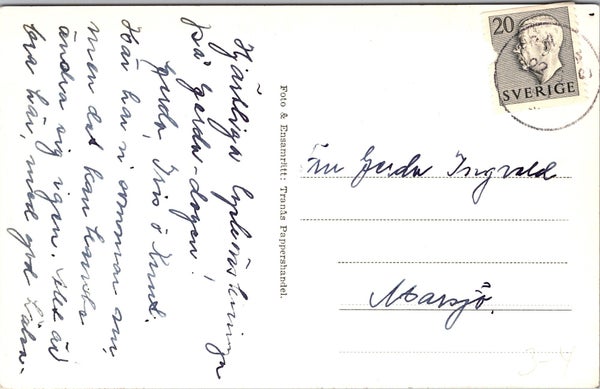 Hjärtliga lyckönskninga
på Gerda-dagen!
Gerda, Iris o Knut.
Här har vi sommar nu
men det kan kanske
ändra sig igen. Allt är
bra här, med god hälsa.
Foto & Ensamrätt: Tranås Pappershandel.
20
SVERIGE
Fru Gerda Ingvald
Marsjö.
3-4